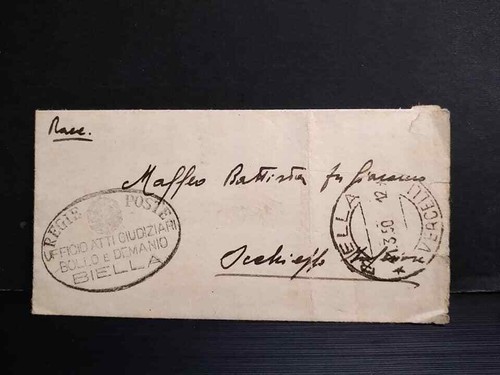 Racc.
Maffeo Battista fu Giacomo
Occhieppo Inferiore
REGIE POSTE
UFFICIO ATTI GIUDIZIARI
BOLLO E DEMANIO
BIELLA
BIELLA
VERCELLI